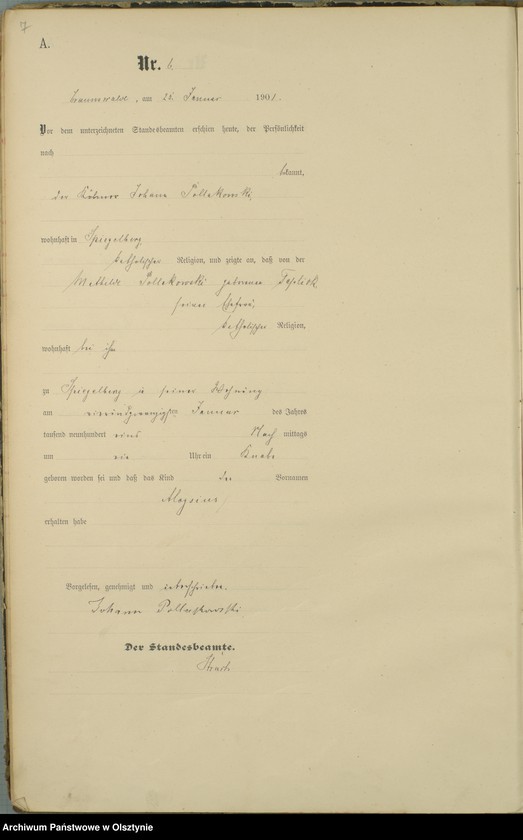 7
A.
Nr. 6
Braunswalde, am 25. Januar 1901.
Vor dem unterzeichneten Standesbeamten erschien heute, der Persönlichkeit
nach
bekannt,
der Johann Pollakowski,
wohnhaft in Spiegelberg,
katholischer Religion, und zeigte an, daß von der
Mathilde Pollakowski geborenen
seiner Ehefrau,
katholischer Religion,
wohnhaft bei ihm
zu Spiegelberg in seiner Wohnung
am einundzwanzigsten Januar des Jahres
tausend neunhundert eins Nach mittags
um Uhr ein Knabe
geboren worden sei und daß das Kind den Vornamen
Aloysius
erhalten habe
Vorgelesen, genehmigt und unterschrieben.
Johann Pollakowski
Der Standesbeamte.
Archiwum Państwowe w Olsztynie